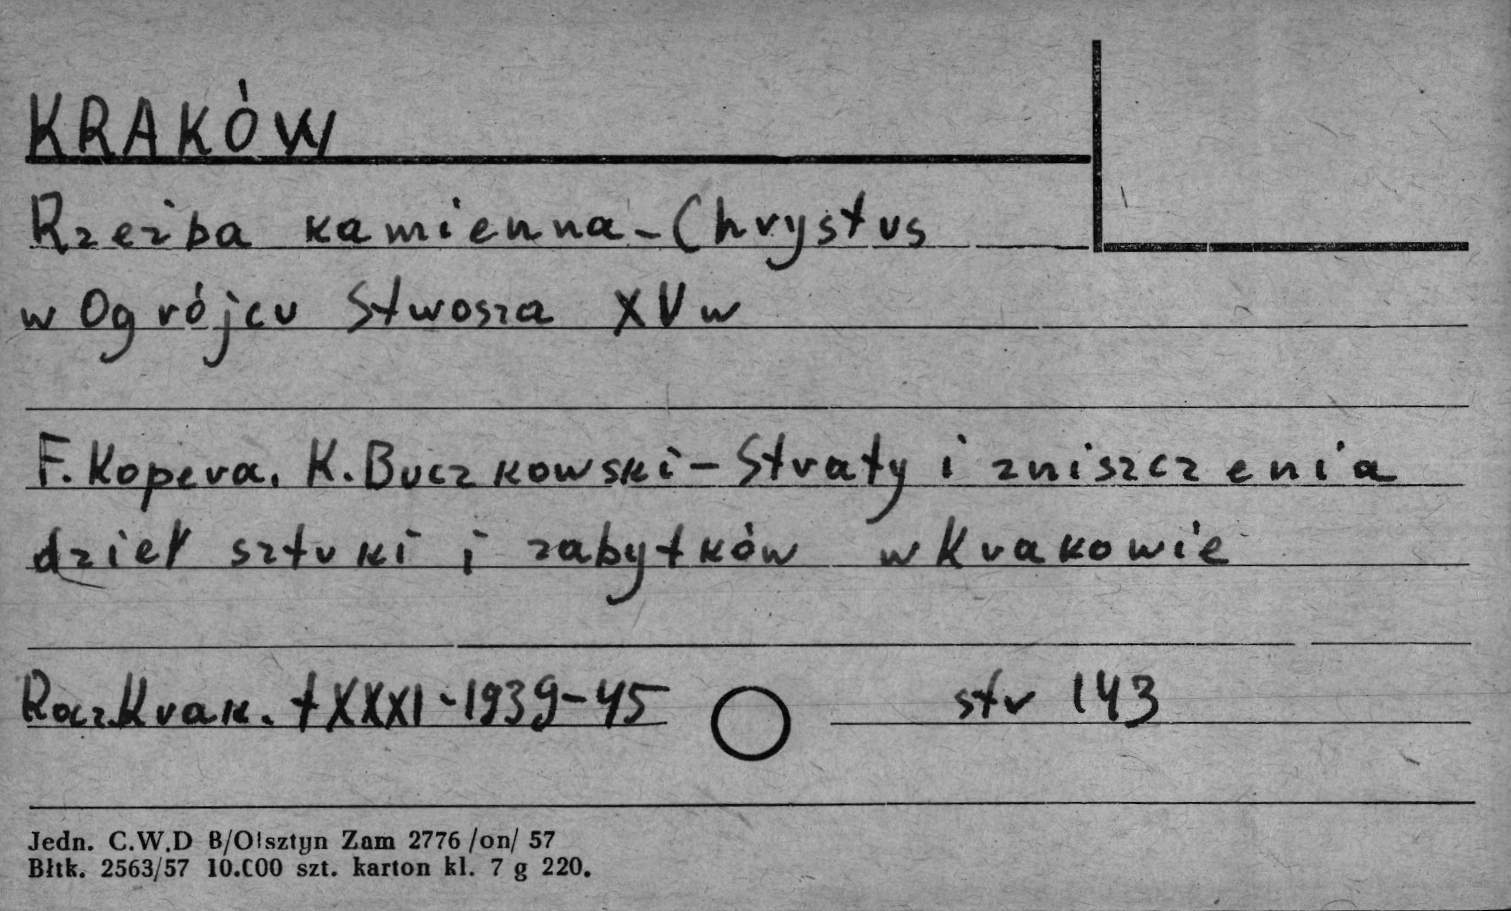 KRAKÓW
Rzeźba kamienna - Chrystus
w Ogrójcu Stwosza XV w
F. Kopera. K. Buczkowski - Straty i zniszczenia
dzieł sztuki i zabytków w Krakowie
Rocz. Krak. t XXXI - 1939-45 str 143
Jedn. C.W.D B/Olsztyn Zam 2776 /on/ 57
Błtk. 2563/57 10.000 szt. karton kl. 7 g 220.